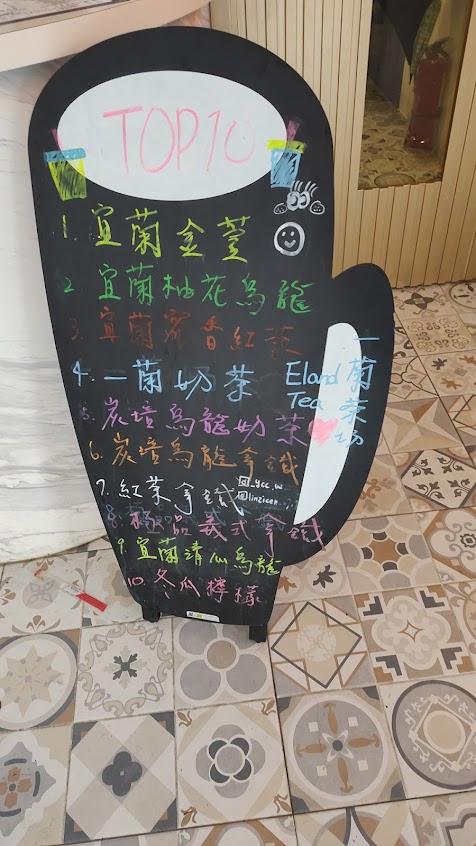 TOP10
1. 宜蘭金萱
2 宜蘭柚花烏龍
3. 宜蘭蜜香紅茶
4. 一蘭奶茶
5. 炭焙烏龍奶茶
6. 炭焙烏龍拿鐵
7. 紅茶拿鐵
8. 極品義式拿鐵
9. 宜蘭清心烏龍
10. 冬瓜檸檬
Eland Tea
一蘭茶坊
@_ycc.w